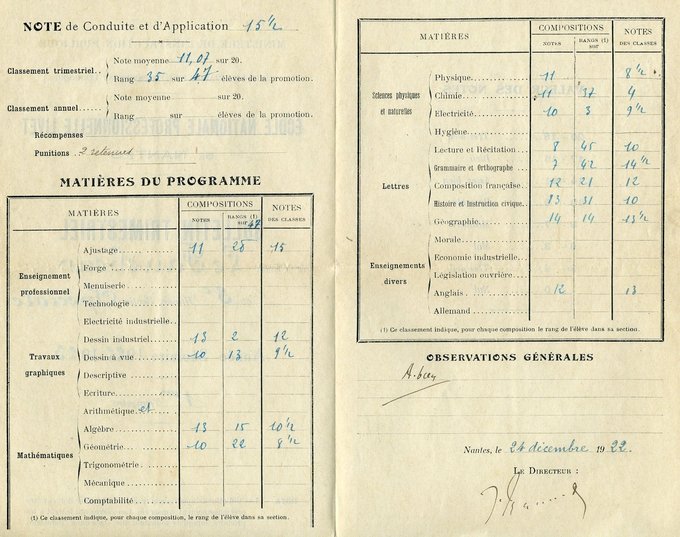 NOTE de Conduite et d'Application 15 1/2
Classement trimestriel. Note moyenne 11,07 sur 20.
Rang 35 sur 47 élèves de la promotion.
Classement annuel. Note moyenne sur 20.
Rang sur élèves de la promotion.
Récompenses
Punitions 2 retenues
MATIÈRES DU PROGRAMME
MATIÈRES COMPOSITIONS NOTES DES CLASSES
NOTES RANGS (1) sur 47
Enseignement professionnel
Ajustage 11 28 15
Forge
Menuiserie
Technologie
Electricité industrielle
Travaux graphiques
Dessin industriel 13 2 12
Dessin à vue 10 13 9 1/2
Descriptive
Ecriture
Mathématiques
Arithmétique et
Algèbre 13 15 10 1/2
Géométrie 10 22 8 1/2
Trigonométrie
Mécanique
Comptabilité
(1) Ce classement indique, pour chaque composition, le rang de l'élève dans sa section.
MATIÈRES COMPOSITIONS NOTES DES CLASSES
NOTES RANGS (1) sur
Sciences physiques et naturelles
Physique 11 8 1/2
Chimie 11 37 4
Electricité 10 3 9 1/2
Hygiène
Lettres
Lecture et Récitation 8 45 10
Grammaire et Orthographe 7 42 14 1/2
Composition française 12 21 12
Histoire et Instruction civique 13 31 10
Géographie 14 14 13 1/2
Enseignements divers
Morale
Economie industrielle
Législation ouvrière
Anglais 12 13
Allemand
(1) Ce classement indique, pour chaque composition le rang de l'élève dans sa section.
OBSERVATIONS GÉNÉRALES
A. bien
Nantes, le 24 décembre 1922.
LE DIRECTEUR :